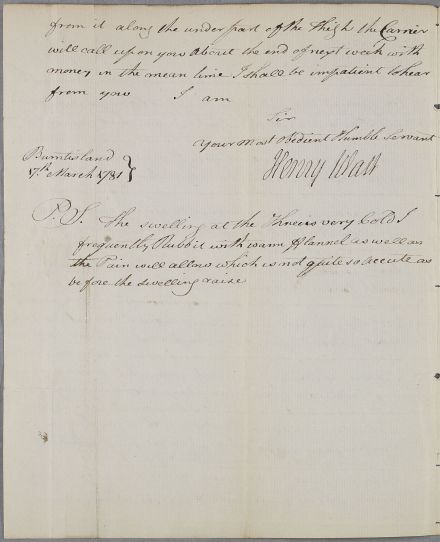 from it along the under part of the Thigh the Carrier
will call upon you about the end of next week with
money in the mean time I shall be impatient to hear
from you I am
Sir
Your Most Obedient Humble Servant
Henry Watt
Burntisland
17th March 1781 }
P. S. The swelling at the Knee is very Cold I
frequently Rub it with warm flannel as well as
the Pain will allow which is not quite so accute as
before the swelling raise